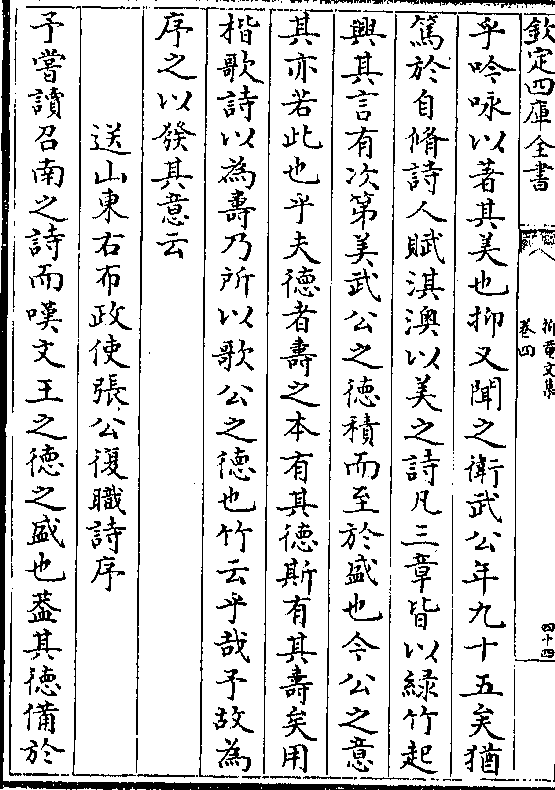 欽定四庫全書
抑菴文集
卷四
四十四
乎吟咏以著其美也抑又聞之衛武公年九十五矣猶
篤於自脩詩人賦淇澳以美之詩凡三章皆以緑竹起
興其言有次第美武公之德積而至於盛也今公之意
其亦若此也乎夫德者壽之本有其德斯有其壽矣用
楷歌詩以為壽乃所以歌公之德也竹云乎哉予故為
序之以發其意云
送山東右布政使張公復職詩序
予嘗讀召南之詩而嘆文王之德之盛也葢其德備於